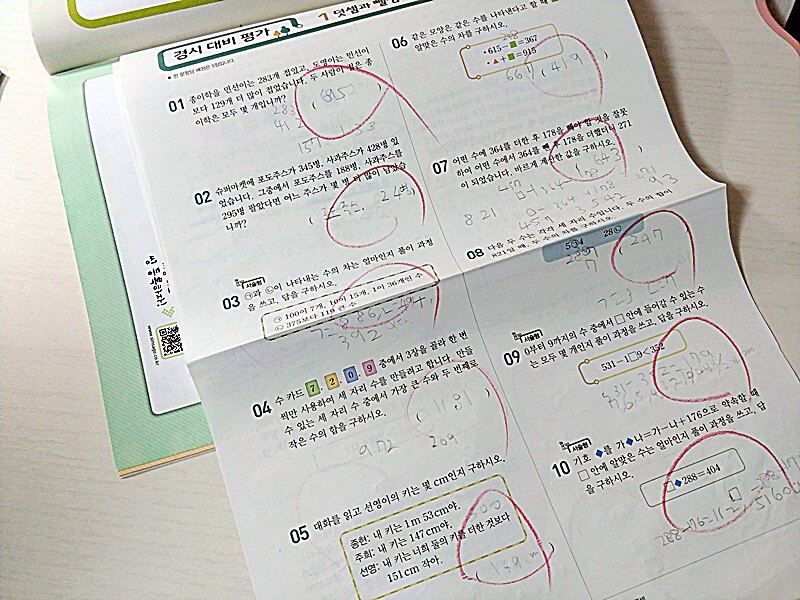 경시 대비 평가
1 덧셈과 뺄셈
01 종이학을 민선이는 283개 접었고, 도영이는 민선이
보다 129개 더 많이 접었습니다. 두 사람이 접은 종
이학은 모두 몇 개입니까?
( 695 )
283
412
02 슈퍼마켓에 포도주스가 345병, 사과주스가 428병 있
었습니다. 그중에서 포도주스를 188병, 사과주스를
295병 팔았다면 어느 주스가 몇 병 더 많이 남았습
니까?
03 서술형 ㉠과 ㉡이 나타내는 수의 차는 얼마인지 풀이 과정
을 쓰고, 답을 구하시오.
㉠ 100이 7개, 10이 15개, 1이 36개인 수
㉡ 375보다 119 큰 수
392
04 수 카드 7, 2, 0, 9 중에서 3장을 골라 한 번
씩만 사용하여 세 자리 수를 만들려고 합니다. 만들
수 있는 세 자리 수 중에서 가장 큰 수와 두 번째로
작은 수의 합을 구하시오.
( 1181 )
972 209
05 대화를 읽고 선영이의 키는 몇 cm인지 구하시오.
종현: 내 키는 1m 53cm야.
주희: 내 키는 147cm야.
선영: 내 키는 너희 둘의 키를 더한 것보다
151cm 작아.
300
( 149cm )
06 같은 모양은 같은 수를 나타낸다고 할 때
알맞은 수의 차를 구하시오.
248
• 615−■=367
• ▲+■=915
667 ( 419 )
07 어떤 수에 364를 더한 후 178을 빼야 할 것을 잘못
하여 어떤 수에서 364를 뺀 후 178을 더했더니 271
이 되었습니다. 바르게 계산한 값을 구하시오.
( 643 )
821
08 다음 두 수는 각각 세 자리 수입니다. 두 수의 합이
821일 때, 두 수의 차를 구하시오.
5㉠4 28㉡
( 247 )
09 서술형 0부터 9까지의 수 중에서 □ 안에 들어갈 수 있는 수
는 모두 몇 개인지 풀이 과정을 쓰고, 답을 구하시오.
531−1□9<352
10 서술형 기호 ◆를 가◆나=가−나+176으로 약속할 때
□ 안에 알맞은 수는 얼마인지 풀이 과정을 쓰고, 답
을 구하시오.
□◆288=404